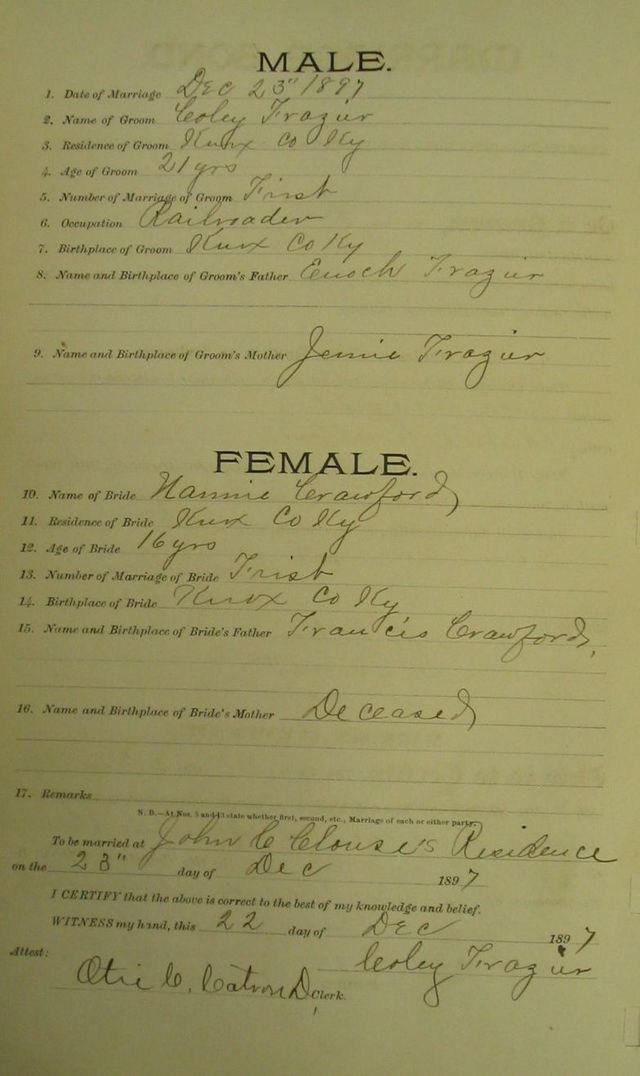 MALE.
1. Date of Marriage Dec 23" 1897
2. Name of Groom Coley Frazier
3. Residence of Groom Knox Co Ky
4. Age of Groom 21 yrs
5. Number of Marriage of Groom First
6. Occupation Railroader
7. Birthplace of Groom Knox Co Ky
8. Name and Birthplace of Groom's Father Enoch Frazier
9. Name and Birthplace of Groom's Mother Jennie Frazier
FEMALE.
10. Name of Bride Nannie Crawford
11. Residence of Bride Knox Co Ky
12. Age of Bride 16 yrs
13. Number of Marriage of Bride First
14. Birthplace of Bride Knox Co Ky
15. Name and Birthplace of Bride's Father Francis Crawford,
16. Name and Birthplace of Bride's Mother Deceased
17. Remarks
N. B.—At Nos. 5 and 13 state whether first, second, etc., Marriage of each or either party.
To be married at John C Clouse's Residence
on the 23" day of Dec 1897
I CERTIFY that the above is correct to the best of my knowledge and belief.
WITNESS my hand, this 22 day of Dec 1897
Coley Frazier
Attest:
C. Catron D Clerk.